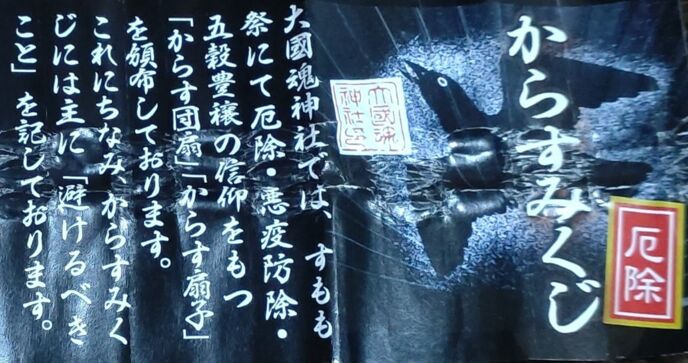 からすみくじ
厄除
大國魂
神社印
大國魂神社では、すもも
祭にて厄除・悪疫防除・
五穀豊穣の信仰をもつ
「からす団扇」「からす扇子」
を頒布しております。
これにちなみ、からすみく
じには主に「避けるべき
こと」を記しております。